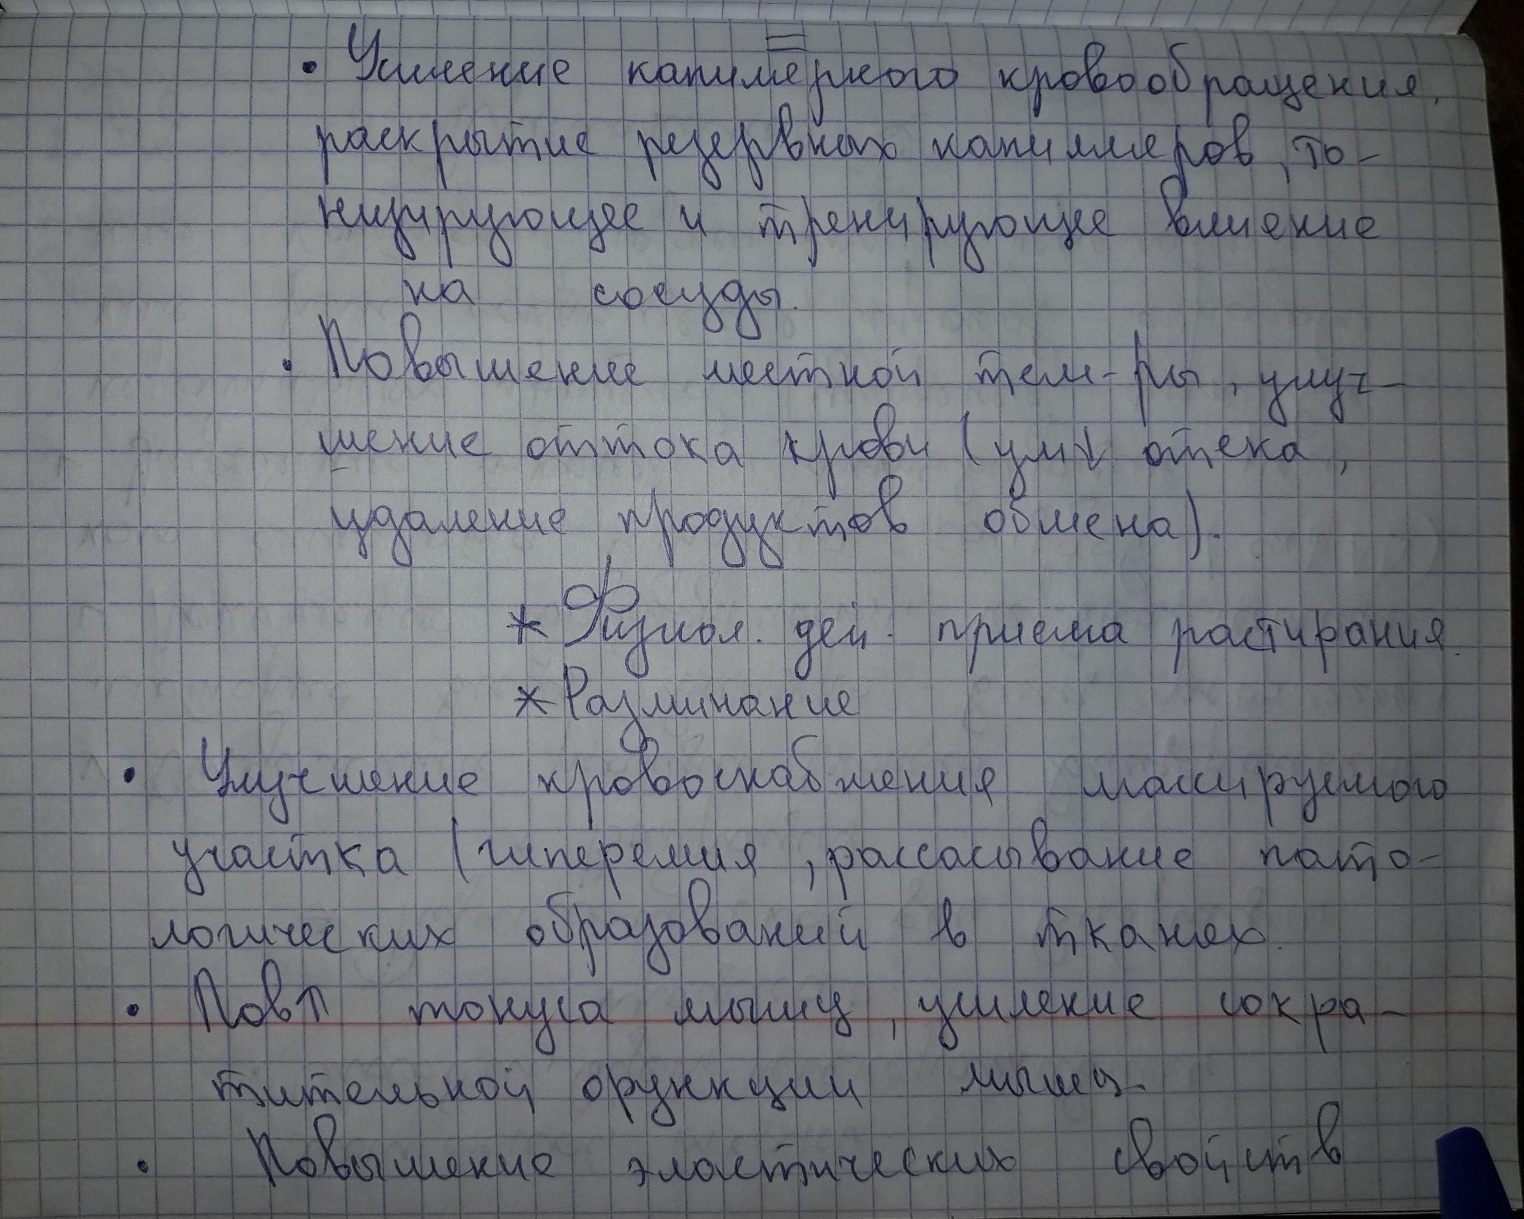 • Усиление капилерного кровообращения,
раскрытие резервных капилляров, то-
низирующее и тренирующее влиение
на сосуды.
• Повышение местной тем-ры, улуч-
шение оттока крови (ум↓ отека,
удаление продуктов обмена).
* Физиол. дей. приема растирания.
* Разминание
• Улучшение кровоснабжения массируемого
участка (гиперемия, рассасывание пато-
логических образований в тканях.
• Пов↑ тонуса мышц, усиление сокра-
тительной функции мышц.
• Повышение эластических свойств